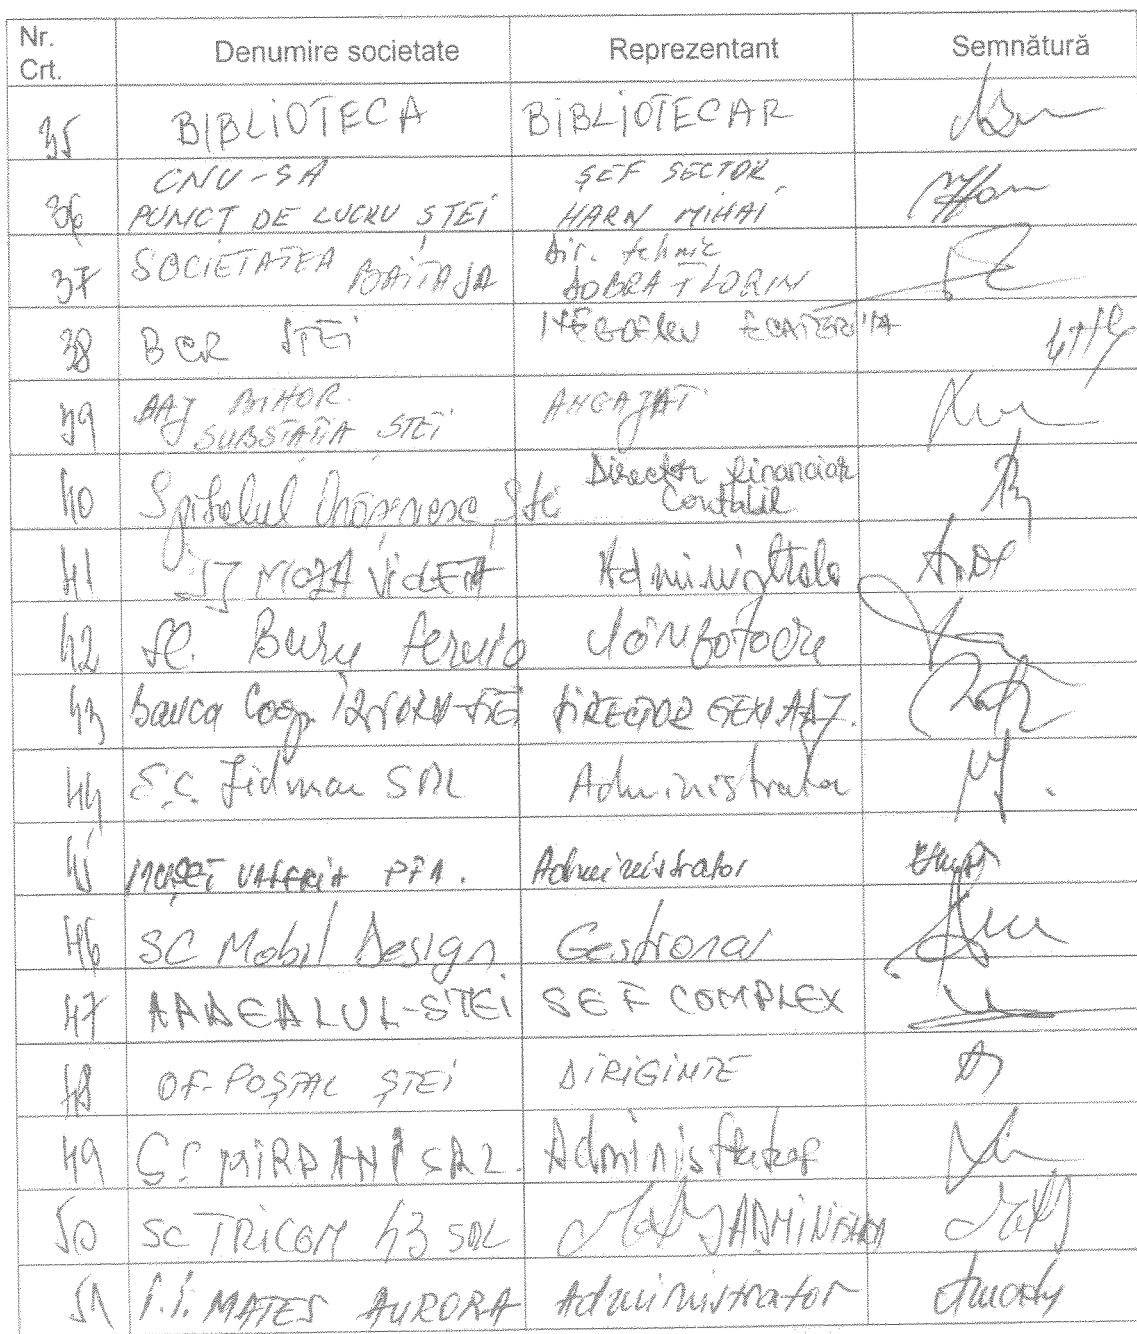 Nr. Crt. Denumire societate Reprezentant Semnătură
35 BIBLIOTECA BIBLIOTECAR
36 CNU-SA ȘEF SECTOR
PUNCT DE LUCRU STEI HARN MIHAI
37 SOCIETATEA BAITA SA Dir. tehnic
DOBRA FLORIN
38 BCR STEI ECATERINA
39 BIHOR ANGAJAT
SUBSTATIA STEI
40 Spitalul Orășenesc Stei Director financiar
Contabil
41 MOZA Administrator
42 SC.
43 Banca Coop. STEI DIRECTOR GEN. ADJ.
44 S.C. SRL Administrator
45 VALERIA PFA. Administrator
46 SC Mobil Design Gestionar
47 ARDEALUL-STEI SEF COMPLEX
48 OF-POȘTAL ȘTEI DIRIGINTE
49 S.C. MIRDANI SRL. Administrator
50 SC TRICOM 43 SRL
51 I.I. MATES AURORA Administrator